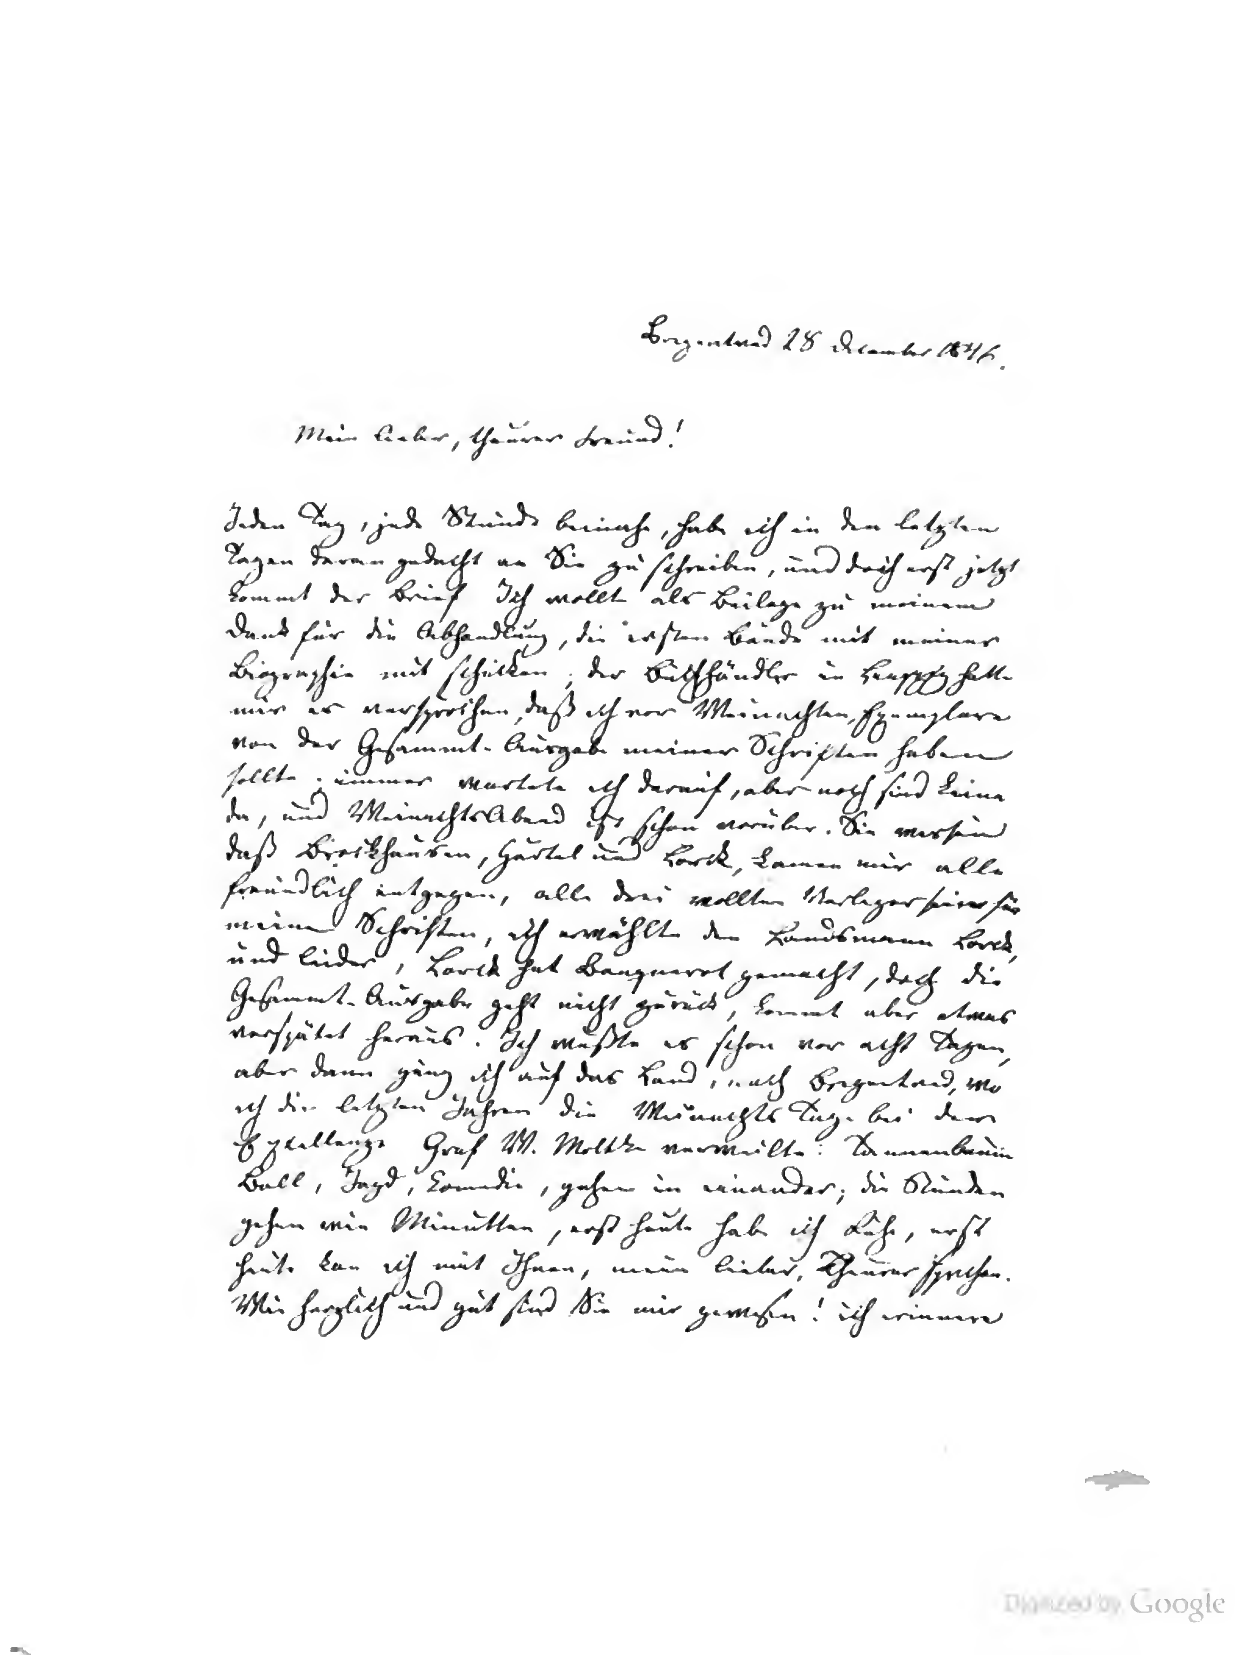 Bregentved 28 December 1846.
Mein lieber, theurer Freund!
Jeden Tag, jede Stunde beinahe, habe ich in den letzten
Tagen daran gedacht an Sie zu schreiben, und doch erst jetzt
kommt der Brief. Ich wollte als Beilage zu meinem
Dank für die Abhandlung, die ersten Bände mit meiner
Biographie mit schicken; der Buchhändler in Leipzig hatte
mir es versprochen, daß ich vor Weinachten, Exemplare
von der Gesammt-Ausgabe meiner Schriften haben
sollte; immer wartete ich darauf, aber noch sind keine
da, und WeinachtsAbend ist schon vorüber. Sie wissen
daß Brockhausen, Härtel und Lorck, kamen mir alle
freundlich entgegen, alle drei wollten Verleger sein für
meine Schriften, ich erwählte den Landsmann Lorck,
und leider, Lorck hat Banquerot gemacht, doch die
Gesammt-Ausgabe geht nicht zurück, kommt aber etwas
verspätet heraus. Ich wußte es schon vor acht Tagen,
aber dann ging ich auf das Land, nach Bregentved, wo
ich die letzten Jahren die Weinachts Tage bei dem
Exzellenze Graf W. Moltke verweilte: Tannenbaum
Ball, Jagd, Komedie, gehen in einander; die Stunden
gehen wie Minutten, erst heute habe ich Ruhe, erst
heute kan ich mit Ihnen, mein lieber, Theurer sprechen.
Wie herzlich und gut sind Sie mir gewesen! ich erinnere
Digitized by Google